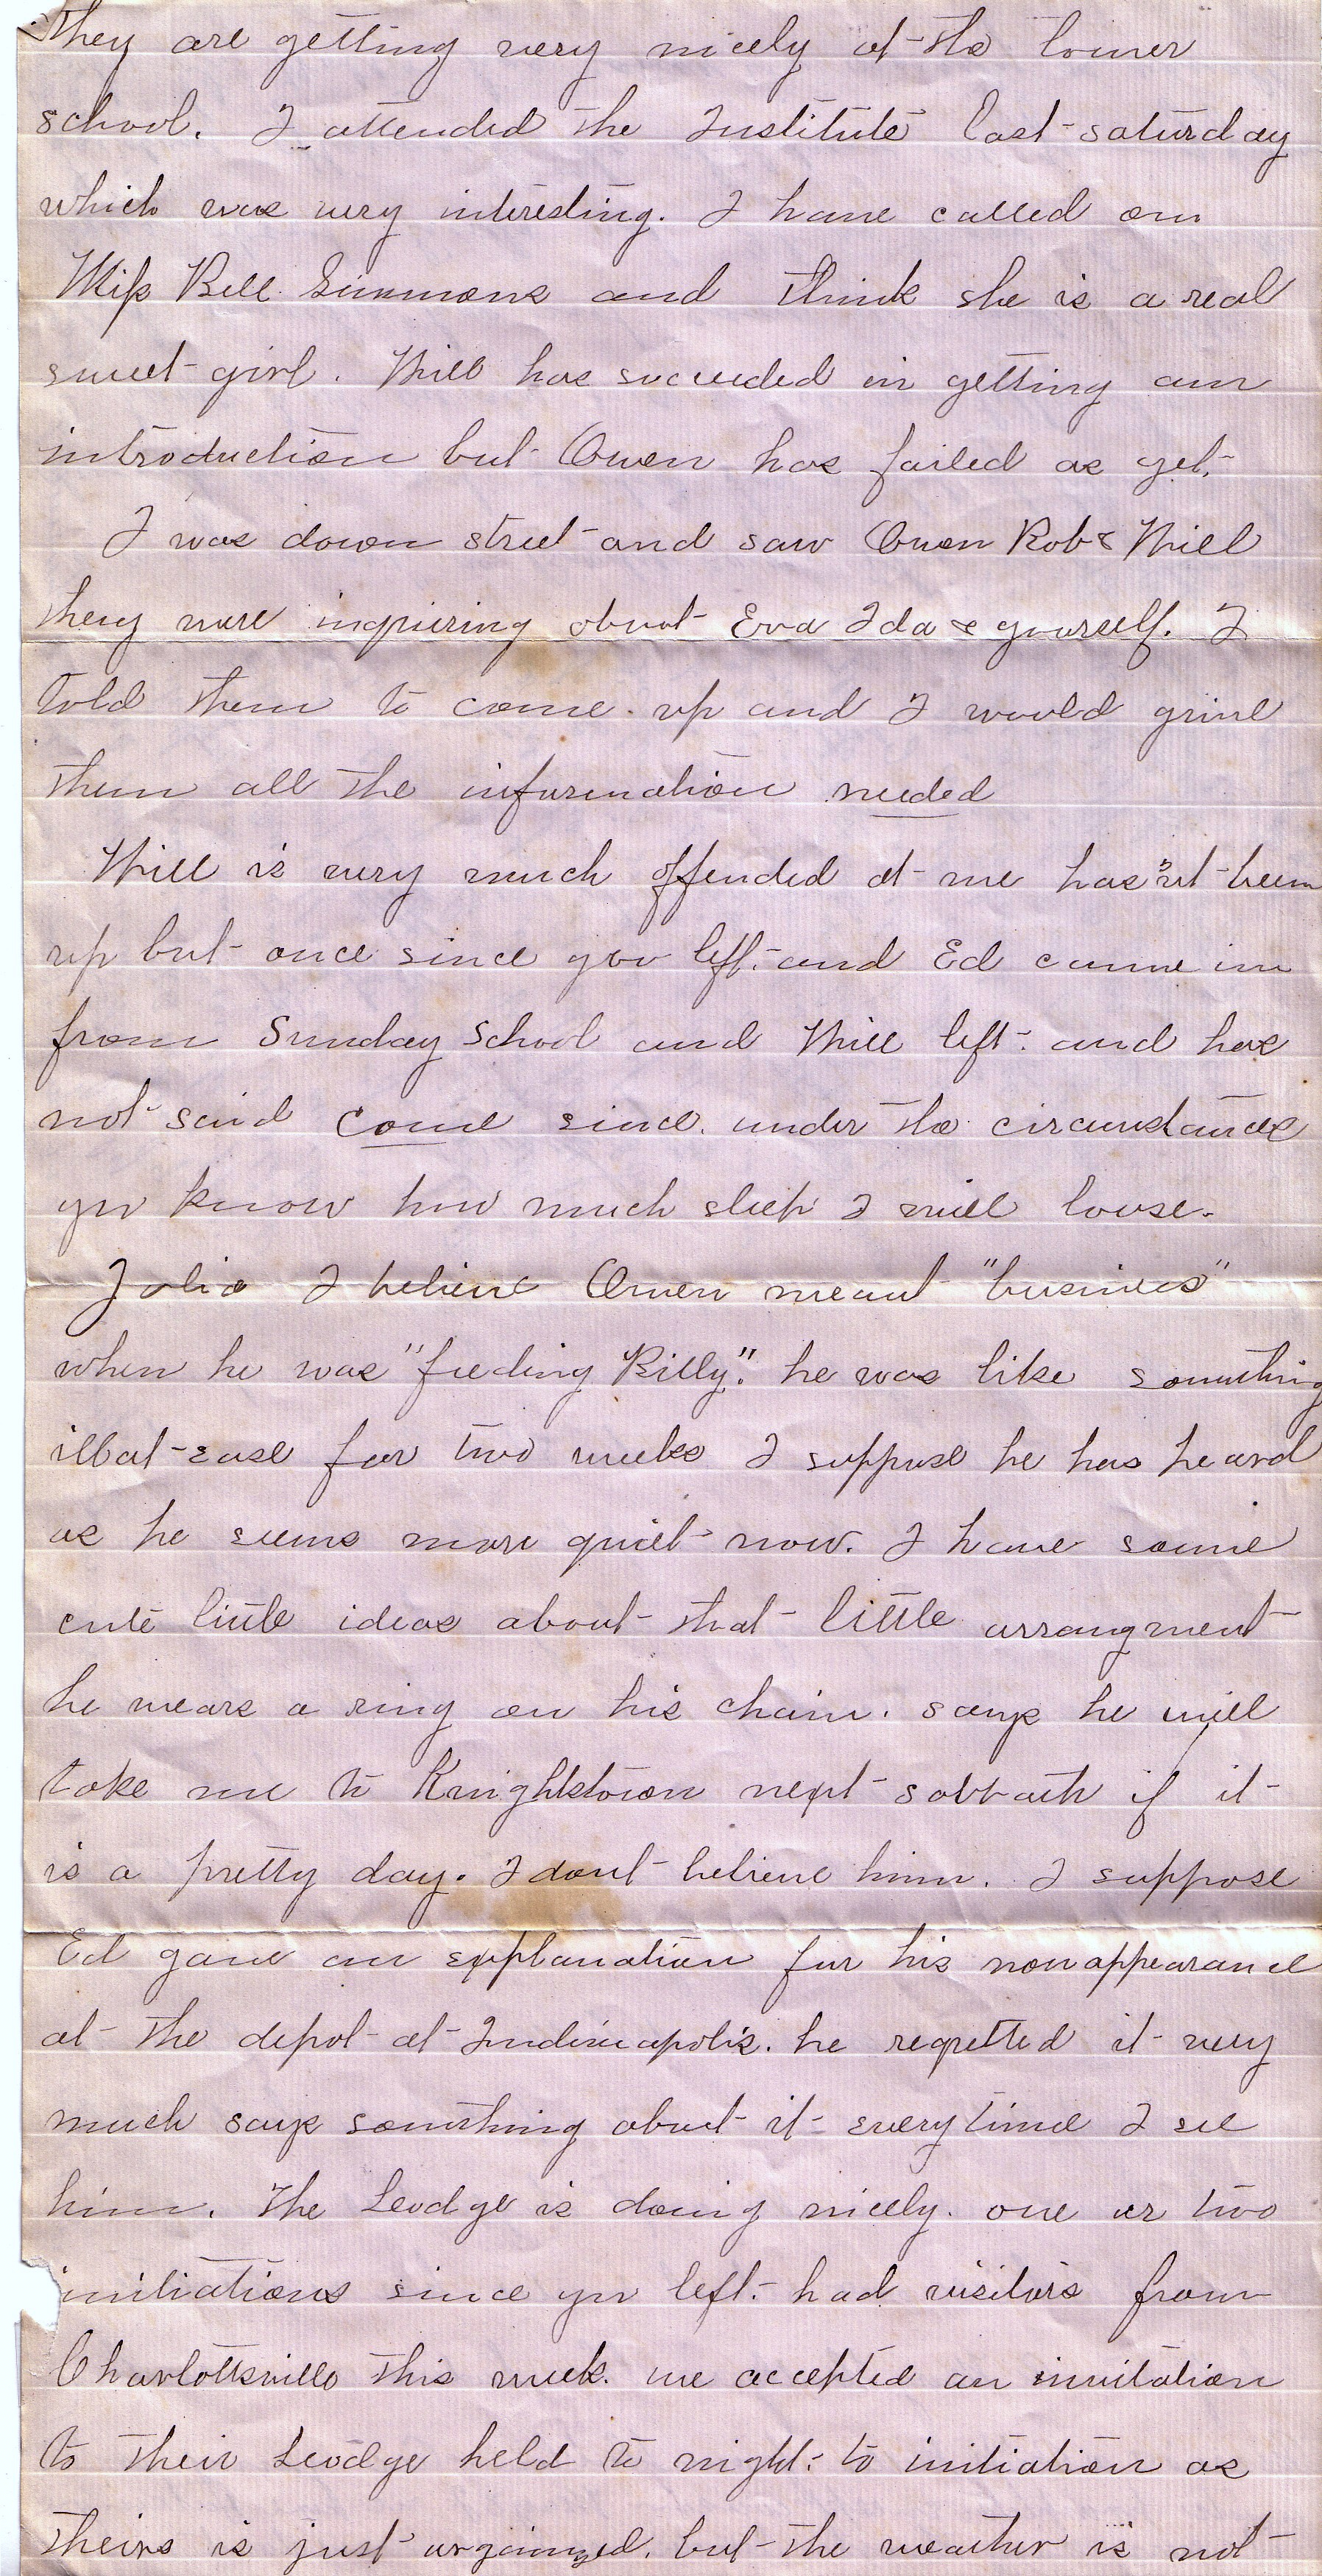 They are getting very nicely at the tower
school. I attended the Institute last saturday
which was very interesting. I have called on
Miss Bell Simmons and think she is a real
sweet girl. Will has succeeded in getting an
introduction but Owen has failed as yet.
I was down street and saw Owen Rob & Will
they were inqviering about Eva Ida & yourself. I
told them to come up and I would give
them all the information needed
Will is very much offended at me has'nt been
up but once since you left. and Ed came in
from Sunday School and Will left. and has
not said come since. under the circumstances
you know how much sleep I will loose.
Julia I believe Owen meant "business"
when he was "feeding Billy." he was like something
ill at ease for two weeks I suppose he has heard
as he seems more quiet now. I have some
cute little ideas about that little arrangment
he wears a ring on his chain. says he will
take me to Knightstown next sabbath if it
is a pretty day. I dont believe him. I suppose
Ed gave an explanation for his nonappearance
at the depot at Indianapolis. he regretted it very
much says something about it everytime I see
him. The Leodge is doing nicely. one or two
initiations since you left. had visitors from
Charlottsville this week. we accepted an invitation
to their Leodge held to night. to initiation as
theirs is just organized. but the weather is not